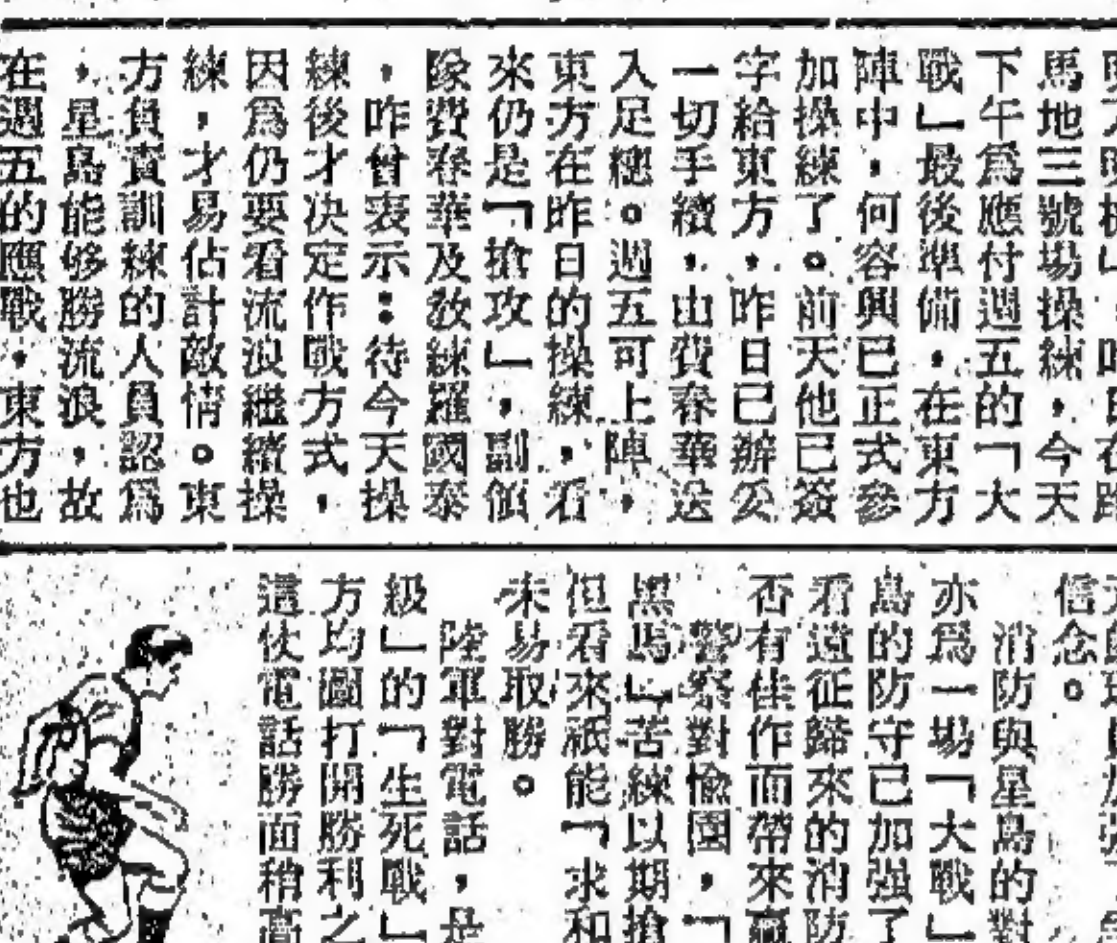 馬地三號場操練,今天
下午爲應付週五的「大
戰」最後準備,在東方
陣中,何容興已正式參
加操練了。前天他已簽
字給東方,昨日已辦妥
一切手續,由費春華送
入足總。週五可上陣,
東方在昨日的操練,看
來仍是「搶攻」,副領
隊費春華及教練羅國泰
,昨曾表示:待今天操
練後才决定作戰方式,
因爲仍要看流浪繼續操
練,才易佔計敵情。東
方負責訓練的人員認爲
,星島能够勝流浪,故
在週五的應戰,東方也
信念。
消防與星島的對
亦爲一場「大戰」
島的防守已加强了
看遠征歸來的消防
否有佳作而帶來贏
警察對愉園,「
黑馬」苦練以期搶
但看來祇能「求和
未易取勝。
陸軍對電話,是
級」的「生死戰」
方均圖打開勝利之
這仗電話勝面稍